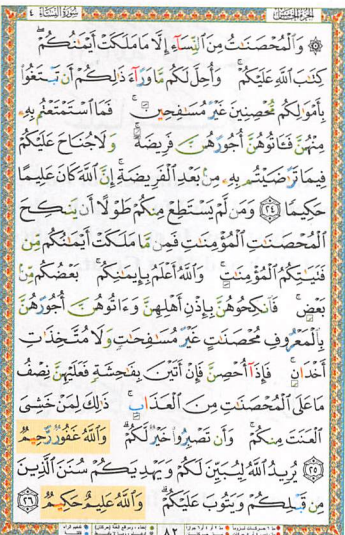 الجزء الخامس سورة النساء ٤
۞ وَالْمُحْصَنَاتُ مِنَ النِّسَاءِ إِلَّا مَا مَلَكَتْ أَيْمَانُكُمْ
كِتَابَ اللَّهِ عَلَيْكُمْ وَأُحِلَّ لَكُم مَّا وَرَاءَ ذَالِكُمْ أَن تَبْتَغُوا
بِأَمْوَالِكُم مُّحْصِنِينَ غَيْرَ مُسَافِحِينَ فَمَا اسْتَمْتَعْتُم بِهِ
مِنْهُنَّ فَآتُوهُنَّ أُجُورَهُنَّ فَرِيضَةً وَلَا جُنَاحَ عَلَيْكُمْ
فِيمَا تَرَاضَيْتُم بِهِ مِن بَعْدِ الْفَرِيضَةِ إِنَّ اللَّهَ كَانَ عَلِيمًا
حَكِيمًا ٢٤ وَمَن لَّمْ يَسْتَطِعْ مِنكُمْ طَوْلًا أَن يَنكِحَ
الْمُحْصَنَاتِ الْمُؤْمِنَاتِ فَمِن مَّا مَلَكَتْ أَيْمَانُكُم مِّن
فَتَيَاتِكُمُ الْمُؤْمِنَاتِ وَاللَّهُ أَعْلَمُ بِإِيمَانِكُم بَعْضُكُم مِّن
بَعْضٍ فَانكِحُوهُنَّ بِإِذْنِ أَهْلِهِنَّ وَءَاتُوهُنَّ أُجُورَهُنَّ
بِالْمَعْرُوفِ مُحْصَنَاتٍ غَيْرَ مُسَافِحَاتٍ وَلَا مُتَّخِذَاتِ
أَخْدَانٍ فَإِذَا أُحْصِنَّ فَإِنْ أَتَيْنَ بِفَاحِشَةٍ فَعَلَيْهِنَّ نِصْفُ
مَا عَلَى الْمُحْصَنَاتِ مِنَ الْعَذَابِ ذَالِكَ لِمَنْ خَشِيَ
الْعَنَتَ مِنكُمْ وَأَن تَصْبِرُوا خَيْرٌ لَّكُمْ وَاللَّهُ غَفُورٌ رَّحِيمٌ
٢٥ يُرِيدُ اللَّهُ لِيُبَيِّنَ لَكُمْ وَيَهْدِيَكُمْ سُنَنَ الَّذِينَ
مِن قَبْلِكُمْ وَيَتُوبَ عَلَيْكُمْ وَاللَّهُ عَلِيمٌ حَكِيمٌ ٢٦
٨٢